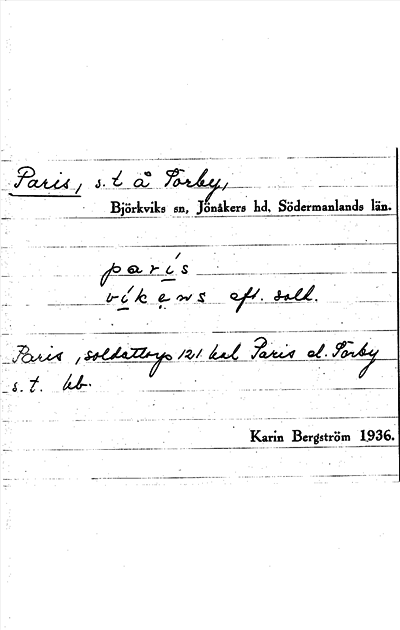 Paris, s.t å Torby,
Björkviks sn, Jönåkers hd, Södermanlands län.
parís
víkẹns eft. sold.
Paris, soldattorp 121 kal Paris el. Torby
s.t. kb.
Karin Bergström 1936.